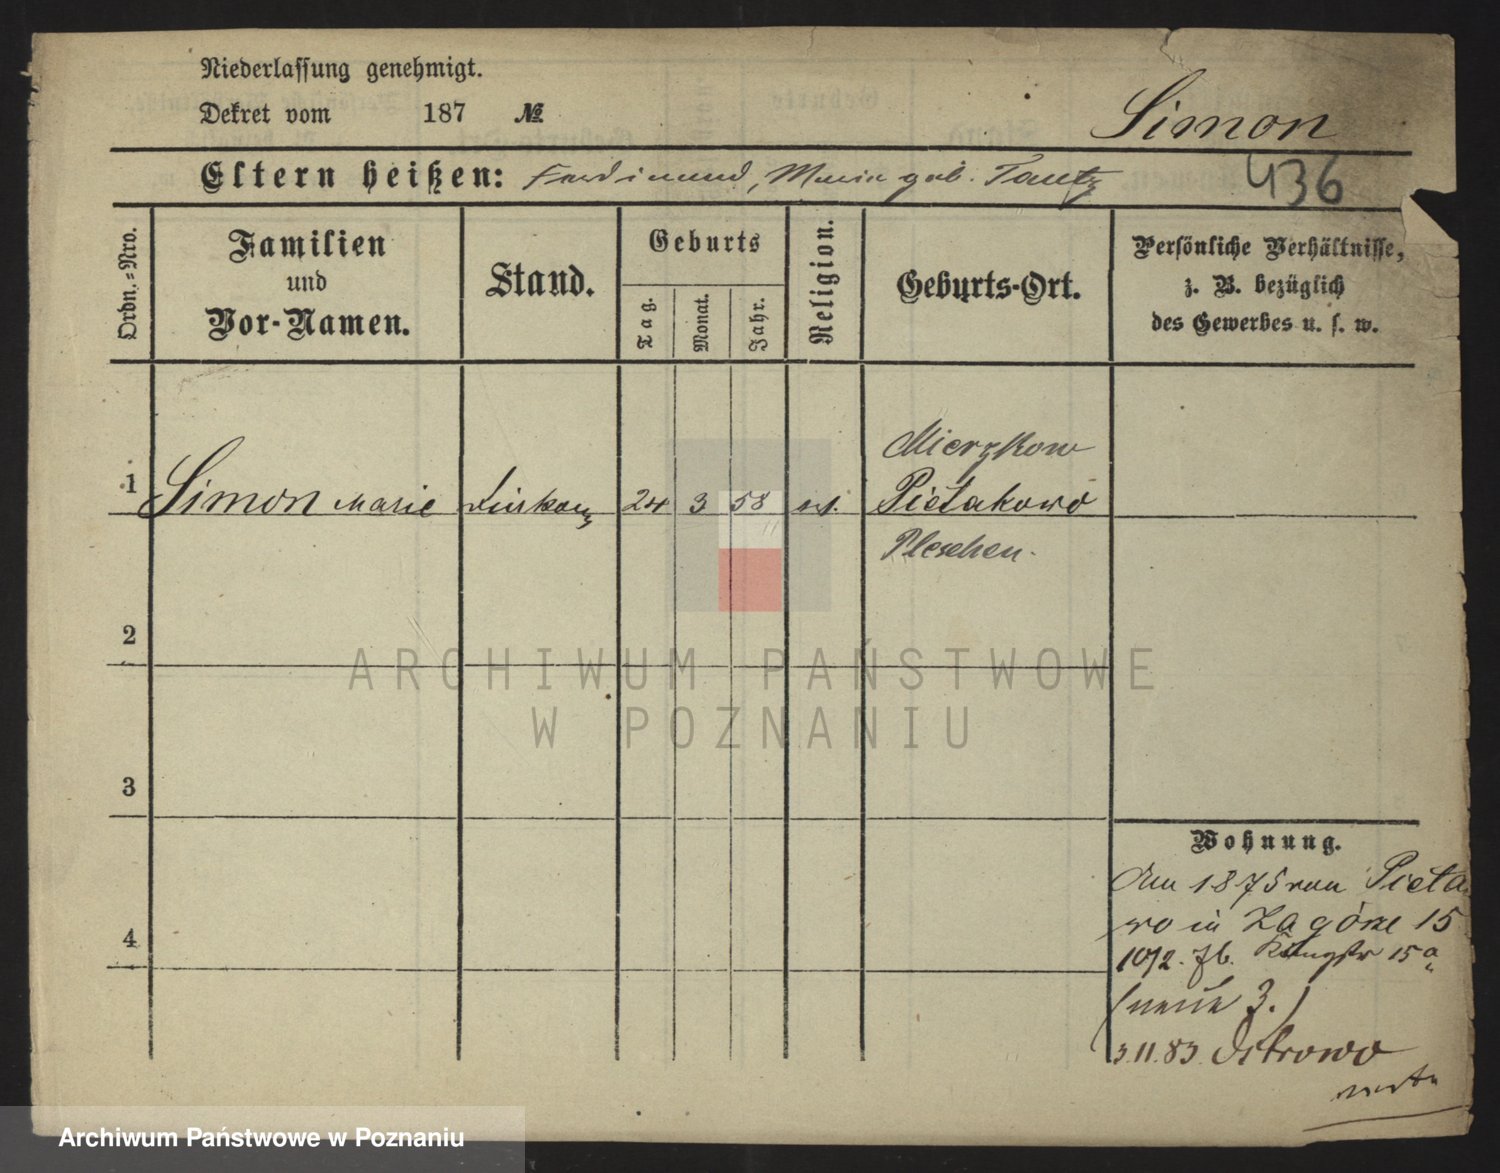 Niederlassung genehmigt.
Dekret vom 187 №
Simon
Eltern heißen: Ferdinand, Maria geb. Tautz
436
Ordn.-Nro.
Familien
und
Vor-Namen.
Stand.
Geburts
Tag.
Monat.
Jahr.
Religion.
Geburts-Ort.
Persönliche Verhältnisse,
z. B. bezüglich
des Gewerbes u. s. w.
Mierzkow
1 Simon Marie 24 3 58 Pietakowo
Pleschen.
2
3
4
Wohnung.
1875 von Pieta
wo in Zagórze 15
10/2. 76. 15a
3.)
3.11.83. Ostrowo
ARCHIWUM PAŃSTWOWE
W POZNANIU
Archiwum Państwowe w Poznaniu